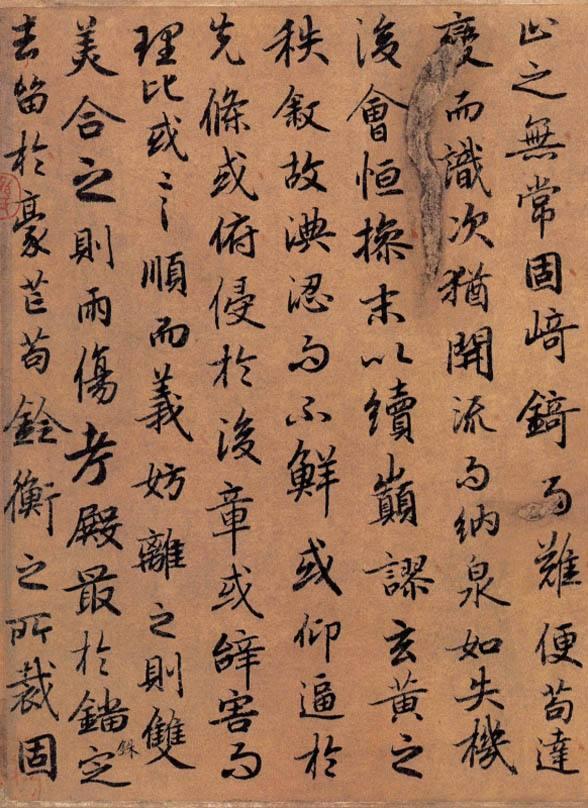 止之無常固崎錡而難便苟達
變而識次猶開流而納泉如失機
後會恒操末以續巔謬玄黃之
秩敘故淟涊而不鮮或仰逼於
先條或俯侵於後章或辞害而
理比或言順而義妨離之則雙
美合之則兩傷考殿最於錙銖定
去留於豪芒苟銓衡之所裁固